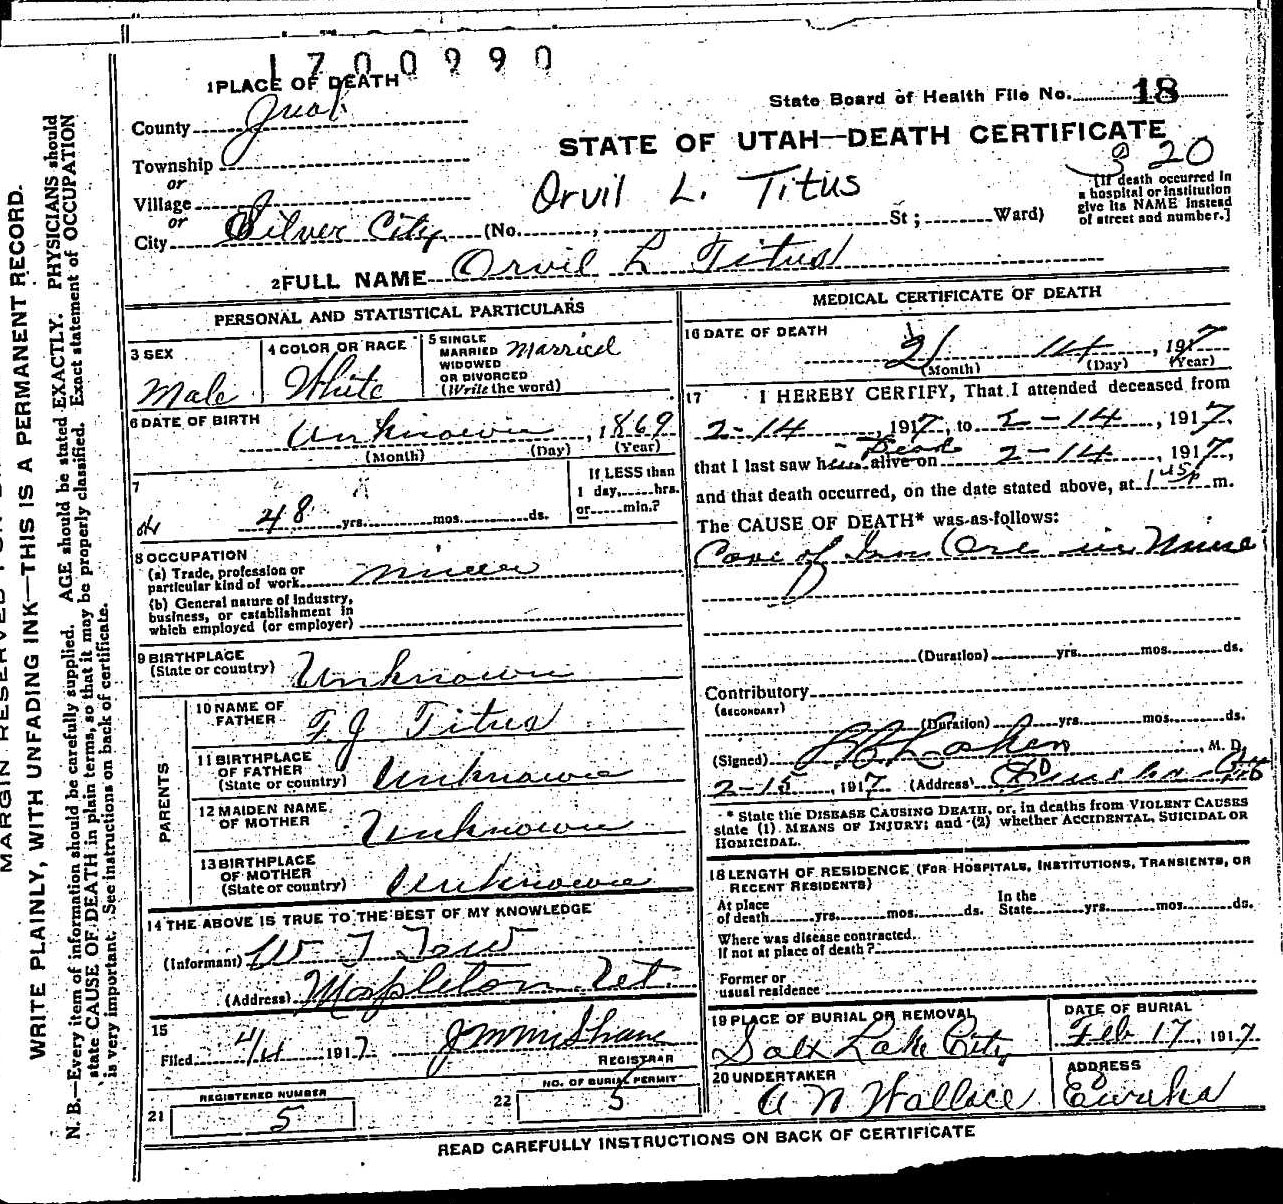 1700990
1 PLACE OF DEATH
State Board of Health File No. 18
County Juab
STATE OF UTAH—DEATH CERTIFICATE
Township
320
or
Village
Orvil L. Titus
[If death occurred in
a hospital or institution
give its NAME instead
of street and number.]
or
City Silver City (No. , St ; Ward)
2 FULL NAME Orvil L Titus
PERSONAL AND STATISTICAL PARTICULARS
3 SEX
Male
4 COLOR OR RACE
White
5 SINGLE
MARRIED
WIDOWED
OR DIVORCED
(Write the word)
Married
6 DATE OF BIRTH
Unknown , 1869
(Month) (Day) (Year)
7
48 yrs. mos. ds.
If LESS than
1 day, hrs.
or min.?
8 OCCUPATION
(a) Trade, profession or
particular kind of work miner
(b) General nature of Industry,
business, or establishment in
which employed (or employer)
9 BIRTHPLACE
(State or country) Unknown
PARENTS
10 NAME OF
FATHER F J Titus
11 BIRTHPLACE
OF FATHER
(State or country) Unknown
12 MAIDEN NAME
OF MOTHER Unknown
13 BIRTHPLACE
OF MOTHER
(State or country) Unknown
14 THE ABOVE IS TRUE TO THE BEST OF MY KNOWLEDGE
(Informant) W T
(Address) Mapleton Ut.
15
Filed 4/4 1917
REGISTRAR
REGISTERED NUMBER
21 5
NO. OF BURIAL PERMIT
22 5
MEDICAL CERTIFICATE OF DEATH
16 DATE OF DEATH
2 14 , 1917
(Month) (Day) (Year)
17 I HEREBY CERTIFY, That I attended deceased from
2-14 , 1917, to 2-14 , 1917,
that I last saw him Dead alive on 2-14 , 1917,
and that death occurred, on the date stated above, at 1 45 P m.
The CAUSE OF DEATH* was as follows:
Cave of Iron Ore in Mine
(Duration) yrs. mos. ds.
Contributory
(SECONDARY)
(Duration) yrs. mos. ds.
(Signed) , M. D.
2-15 , 1917 (Address)
* State the DISEASE CAUSING DEATH, or, in deaths from VIOLENT CAUSES
state (1) MEANS OF INJURY; and (2) whether ACCIDENTAL, SUICIDAL OR
HOMICIDAL.
18 LENGTH OF RESIDENCE (FOR HOSPITALS, INSTITUTIONS, TRANSIENTS, OR
RECENT RESIDENTS)
At place
of death yrs. mos. ds.
In the
State yrs. mos. ds.
Where was disease contracted,
If not at place of death?
Former or
usual residence
19 PLACE OF BURIAL OR REMOVAL
Salt Lake City
DATE OF BURIAL
Feb 17 , 1917
20 UNDERTAKER
A N Wallace
ADDRESS
Eureka
READ CAREFULLY INSTRUCTIONS ON BACK OF CERTIFICATE
MARGIN RESERVED
WRITE PLAINLY, WITH UNFADING INK—THIS IS A PERMANENT RECORD.
N. B.—Every item of information should be carefully supplied. AGE should be stated EXACTLY. PHYSICIANS should
state CAUSE OF DEATH in plain terms, so that it may be properly classified. Exact statement of OCCUPATION
is very important. See instructions on back of certificate.